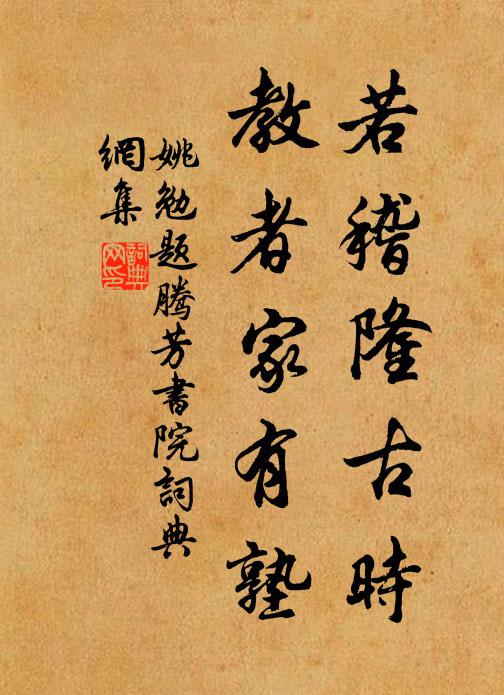 若稽隆古時
教者家有塾
姚勉題騰芳書院詞典
網集
詞典
网印